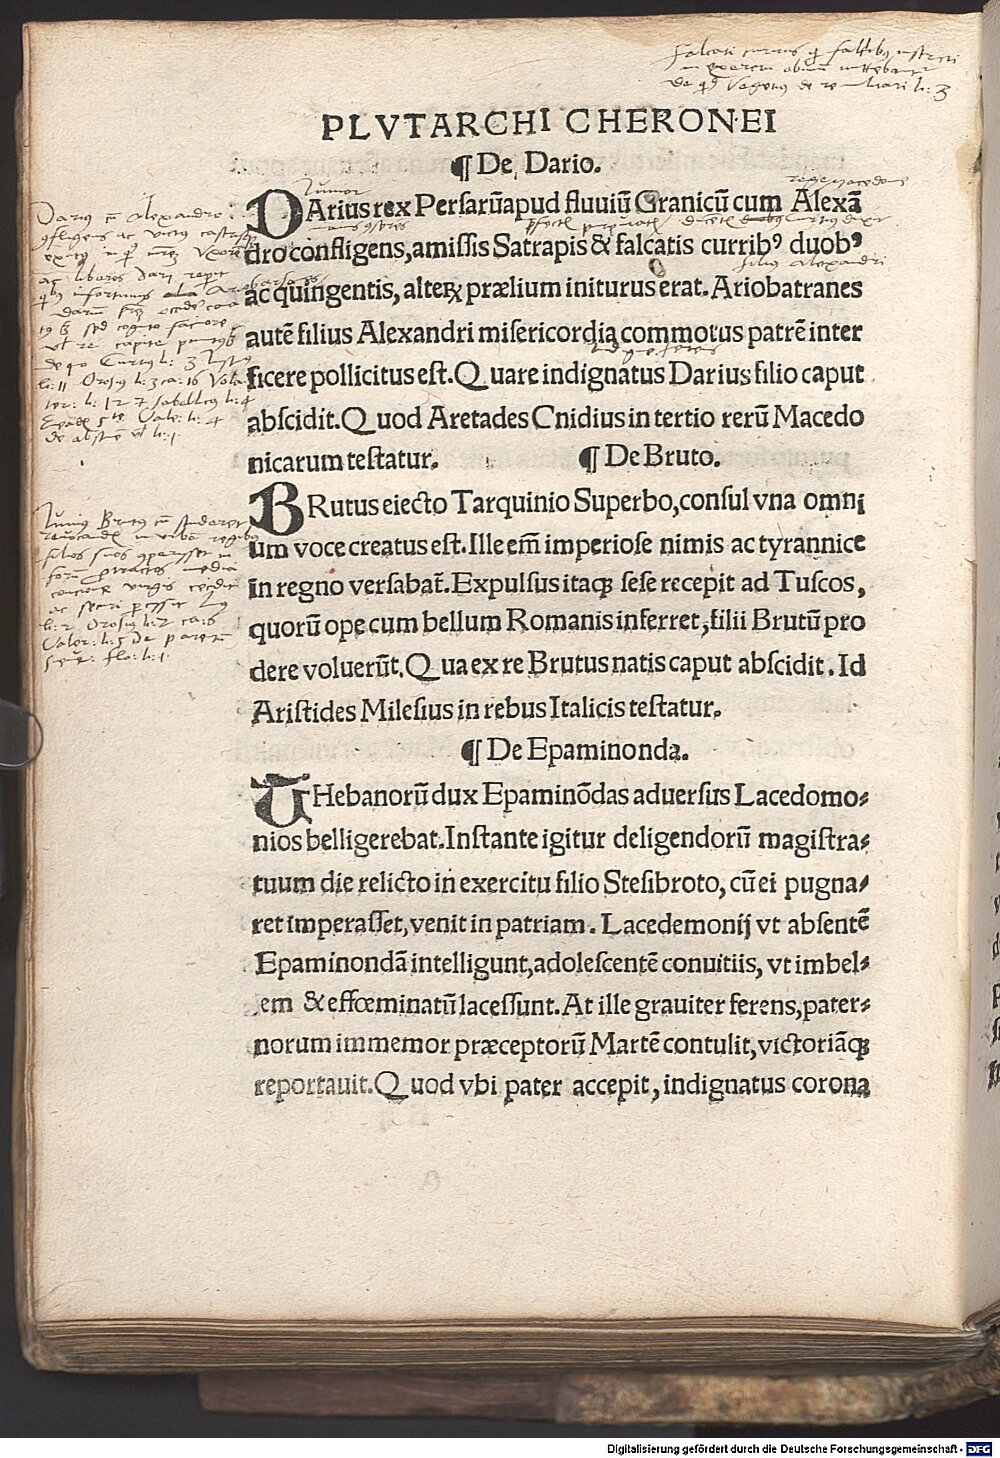 Falcati currus q falcibus instructi
in exercitum
de re
PLVTARCHI CHERONEI
¶ De Dario.
Iunior
rege Macedonie
DArius rex Persarū apud fluuiū Granicū cum Alexā
dro confligens, amissis Satrapis & falcatis curribꝰ duobꝰ
filius Alexandri
ac quingentis, alteꝝ prælium initurus erat. Ariobatranes
autē filius Alexandri misericordia commotus patrē inter
ficere pollicitus est. Quare indignatus Darius filio caput
abscidit. Quod Aretades Cnidius in tertio rerū Macedo
nicarum testatur. ¶ De Bruto.
BRutus eiecto Tarquinio Superbo, consul vna omni
um voce creatus est. Ille em̄ imperiose nimis ac tyrannice
in regno versabat̄. Expulsus itaqꝫ sese recepit ad Tuscos,
quorū ope cum bellum Romanis inferret, filii Brutū pro
dere voluerūt. Qua ex re Brutus natis caput abscidit. Id
Aristides Milesius in rebus Italicis testatur.
¶ De Epaminonda.
THebanorū dux Epaminōdas aduersus Lacedomo⸗
nios belligerebat. Instante igitur deligendorū magistra⸗
tuum die relicto in exercitu filio Stesibroto, cū ei pugna⸗
ret imperasset, venit in patriam. Lacedemonij vt absentē
Epaminondā intelligunt, adolescentē conuitiis, vt imbel⸗
em & effœminatū lacessunt. At ille grauiter ferens, pater⸗
norum immemor præceptorū Martē contulit, victoriāqꝫ
reportauit. Quod vbi pater accepit, indignatus corona
Darius cū Alexandro
confligens ac victus
ac liberos Darij
li: 11 Orosius li: 3 ca: 16
Iunius Brutus cū
filios suos
li: 2 Orosius li: 2 ca: 5
Valer: li: 5 De
flo: li: 1
Digitalisierung gefördert durch die Deutsche Forschungsgemeinschaft - DFG